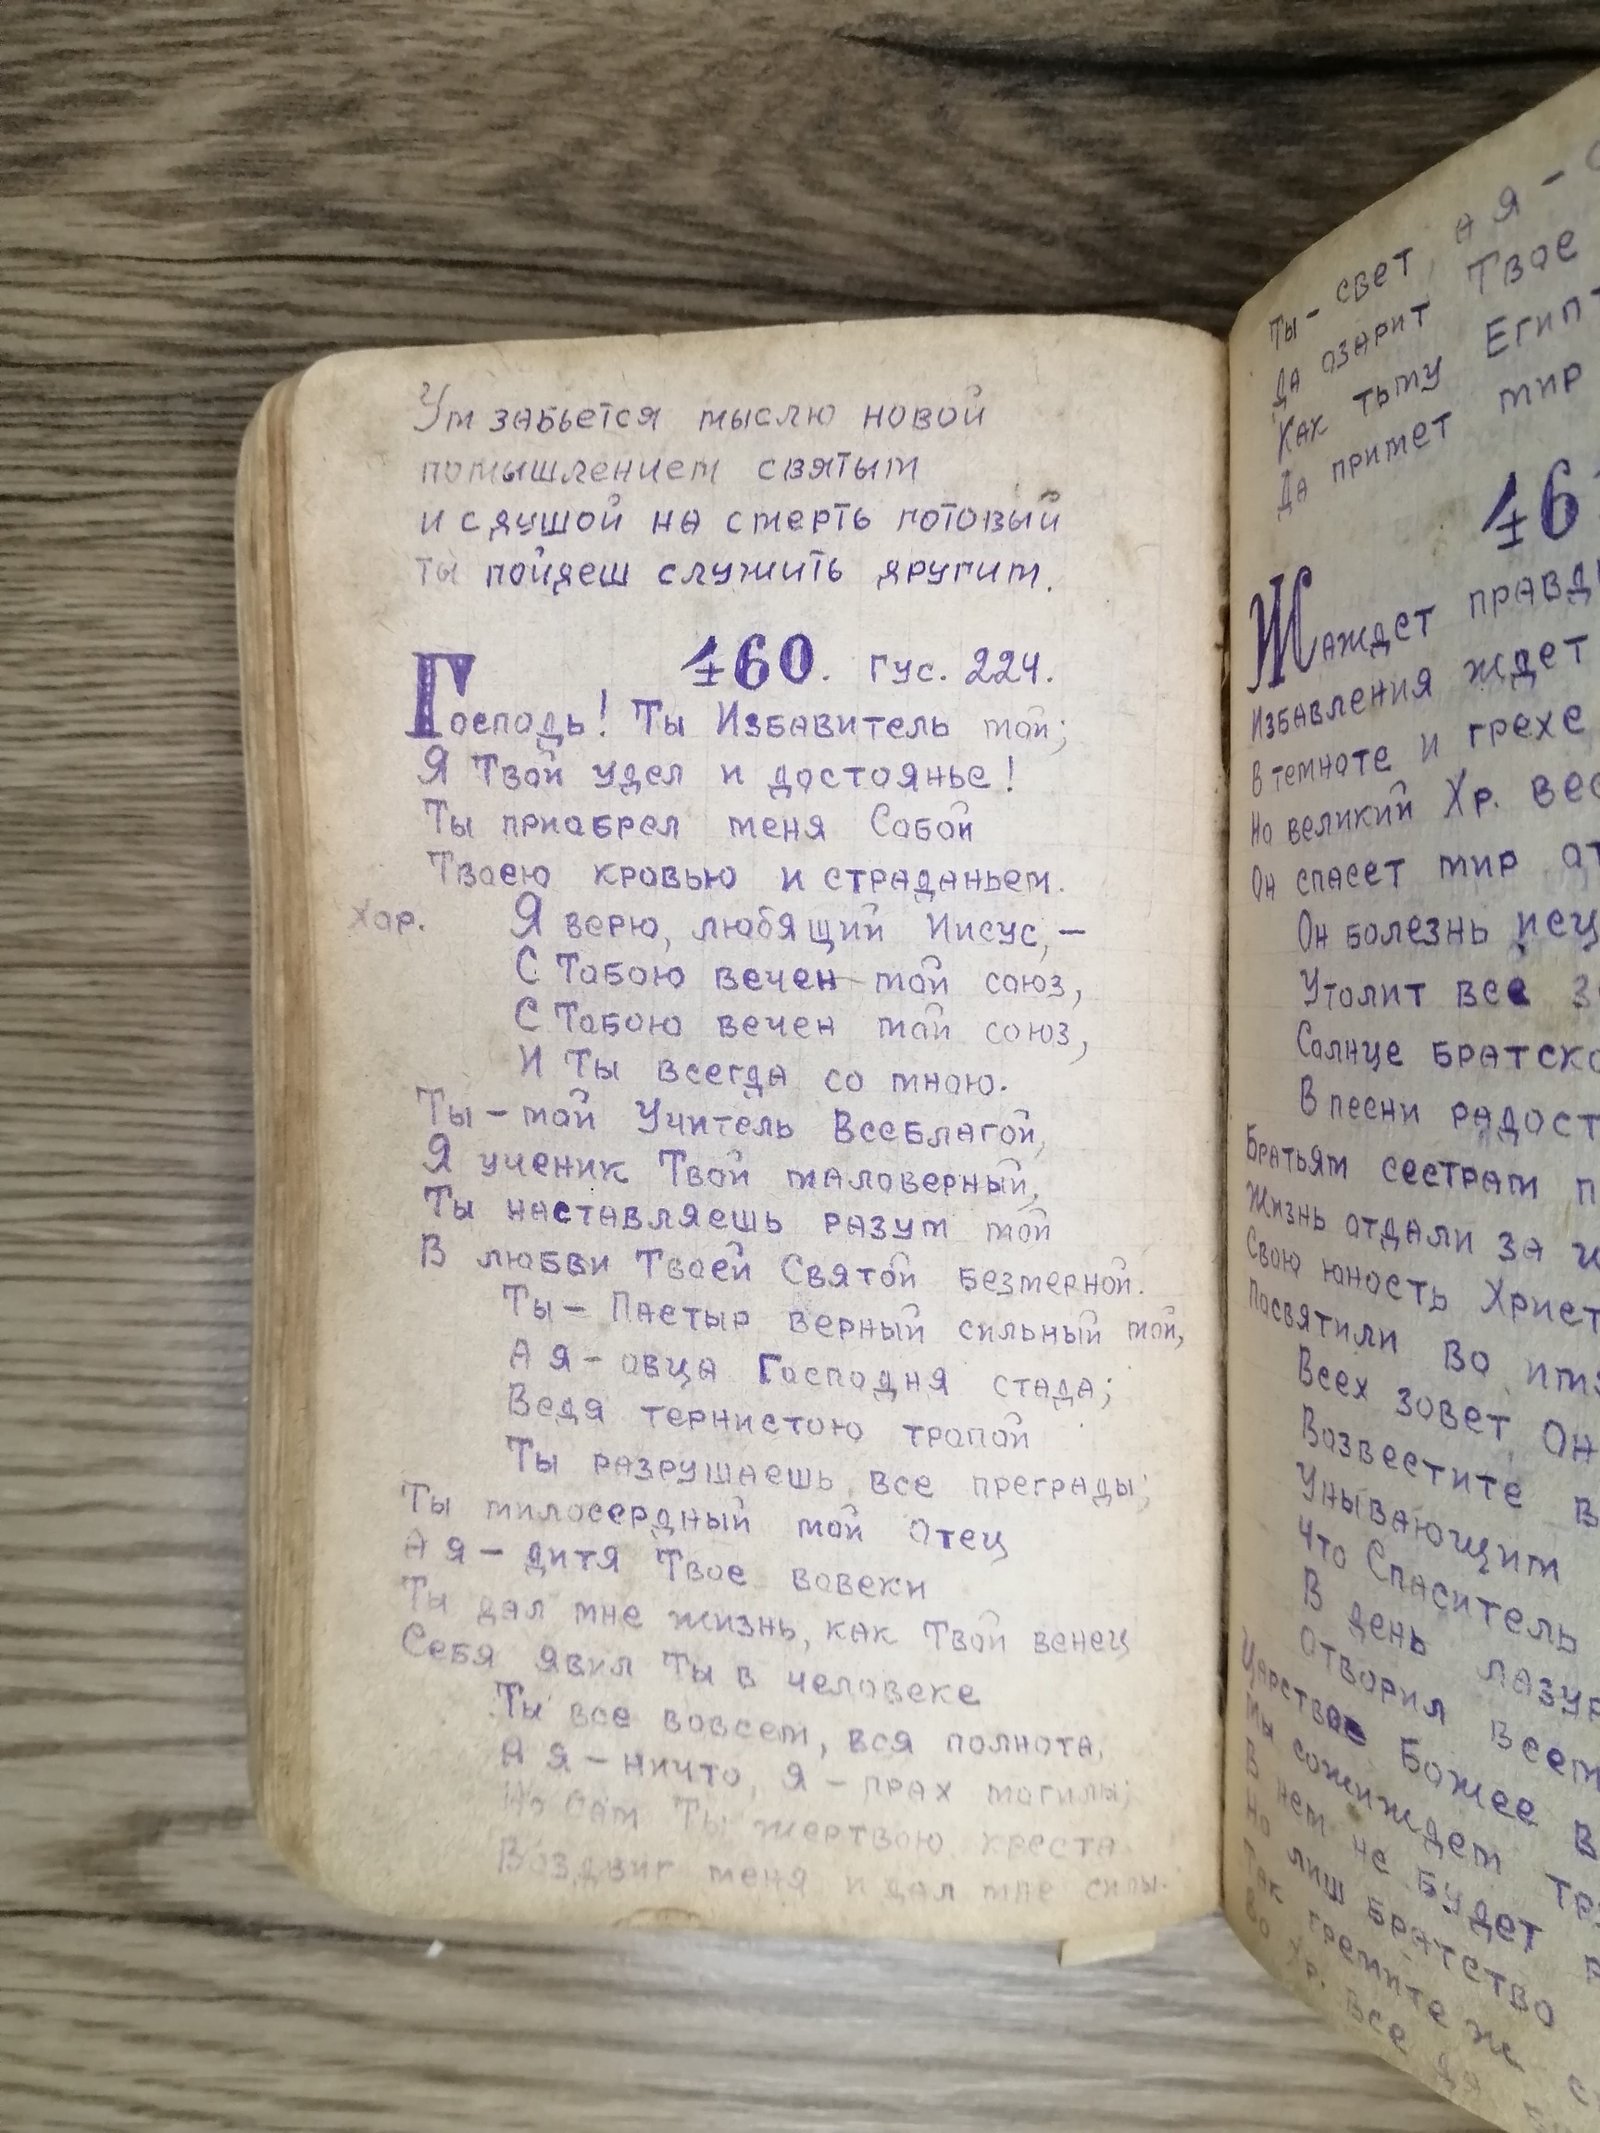 Ум забьется мыслю новой
помышлением святым
и с душой на смерть готовый
ты пойдеш служить другим.
160. Гус. 224.
Господь! Ты Избавитель мой;
Я Твой удел и достоянье!
Ты приобрел меня Собой
Твоею кровью и страданьем.
Хор. Я верю, любящий Иисус, –
С Тобою вечен мой союз,
С Тобою вечен мой союз,
И Ты всегда со мною.
Ты – мой Учитель Всеблагой,
Я ученик Твой маловерный,
Ты наставляешь разум мой
В любви Твоей Святой безмерной.
Ты – Пастыр верный сильный мой,
А я – овца Господня стада;
Ведя тернистою тропой
Ты разрушаешь все преграды;
Ты милосердный мой Отец
А я – дитя Твое вовеки
Ты дал мне жизнь, как Твой венец
Себя явил Ты в человеке
Ты все вовсем, вся полнота,
А я – ничто, я – прах могилы;
Но Сам Ты жертвою креста
Воздвиг меня и дал мне силы.
Ты – свет, а я –
Да озарит Твое
Как тьму Египт
Да примет мир
Жаждет правды
Избавления ждет
В темноте и грехе
Но великий Хр.
Он спасет мир от
Он болезнь исц
Утолит все
Солнце братско
В песни радост
Братьям сестрам
Жизнь отдали за
Свою юность Христ
Посвятили во имя
Всех зовет Он
Возвестите
Унывающим
Что Спаситель
В день лазур
Отворил всем
Царство Божее в
Мы сожиждем
В нем не будет
Но лиш братство
Так гремите ж
Во Хр. все